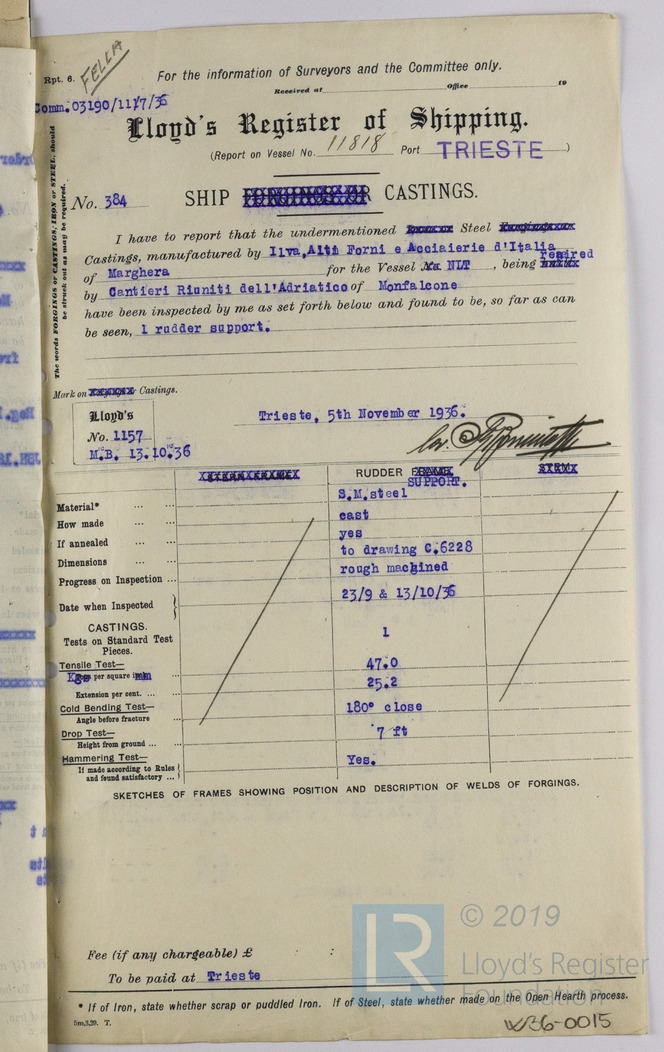 Rpt. 6.
FELLA
For the information of Surveyors and the Committee only.
Received at Office 19
Comm.03190/11/7/36
Lloyd's Register of Shipping.
(Report on Vessel No. 11818 Port TRIESTE)
The words FORGINGS or CASTINGS, IRON or STEEL, should be struck out as may be required.
No. 384 SHIP FORGINGS OR CASTINGS.
I have to report that the undermentioned Steel
Castings, manufactured by Ilva, Alti Forni e Acciaierie d'Italia
of Marghera for the Vessel NIT, being repaired
by Cantieri Riuniti dell'Adriatico of Monfalcone
have been inspected by me as set forth below and found to be, so far as can
be seen, 1 rudder support.
Mark on Castings.
Lloyd's
No. 1157
M.B. 13.10.36
Trieste, 5th November 1936.
STERN FRAME RUDDER FRAME STEM
SUPPORT.
Material* S.M.steel
How made cast
If annealed yes
Dimensions to drawing C.6228
Progress on Inspection rough machined
Date when Inspected 23/9 & 13/10/36
CASTINGS.
Tests on Standard Test Pieces. 1
Tensile Test—
Kgs per square mm 47.0
Extension per cent. 25.2
Cold Bending Test—
Angle before fracture 180° close
Drop Test—
Height from ground 7 ft
Hammering Test—
If made according to Rules and found satisfactory Yes.
SKETCHES OF FRAMES SHOWING POSITION AND DESCRIPTION OF WELDS OF FORGINGS.
Fee (if any chargeable) £ :
To be paid at Trieste
* If of Iron, state whether scrap or puddled Iron. If of Steel, state whether made on the Open Hearth process.
5m,3,29. T.
W36-0015
LR
© 2019
Lloyd's Register
Foundation